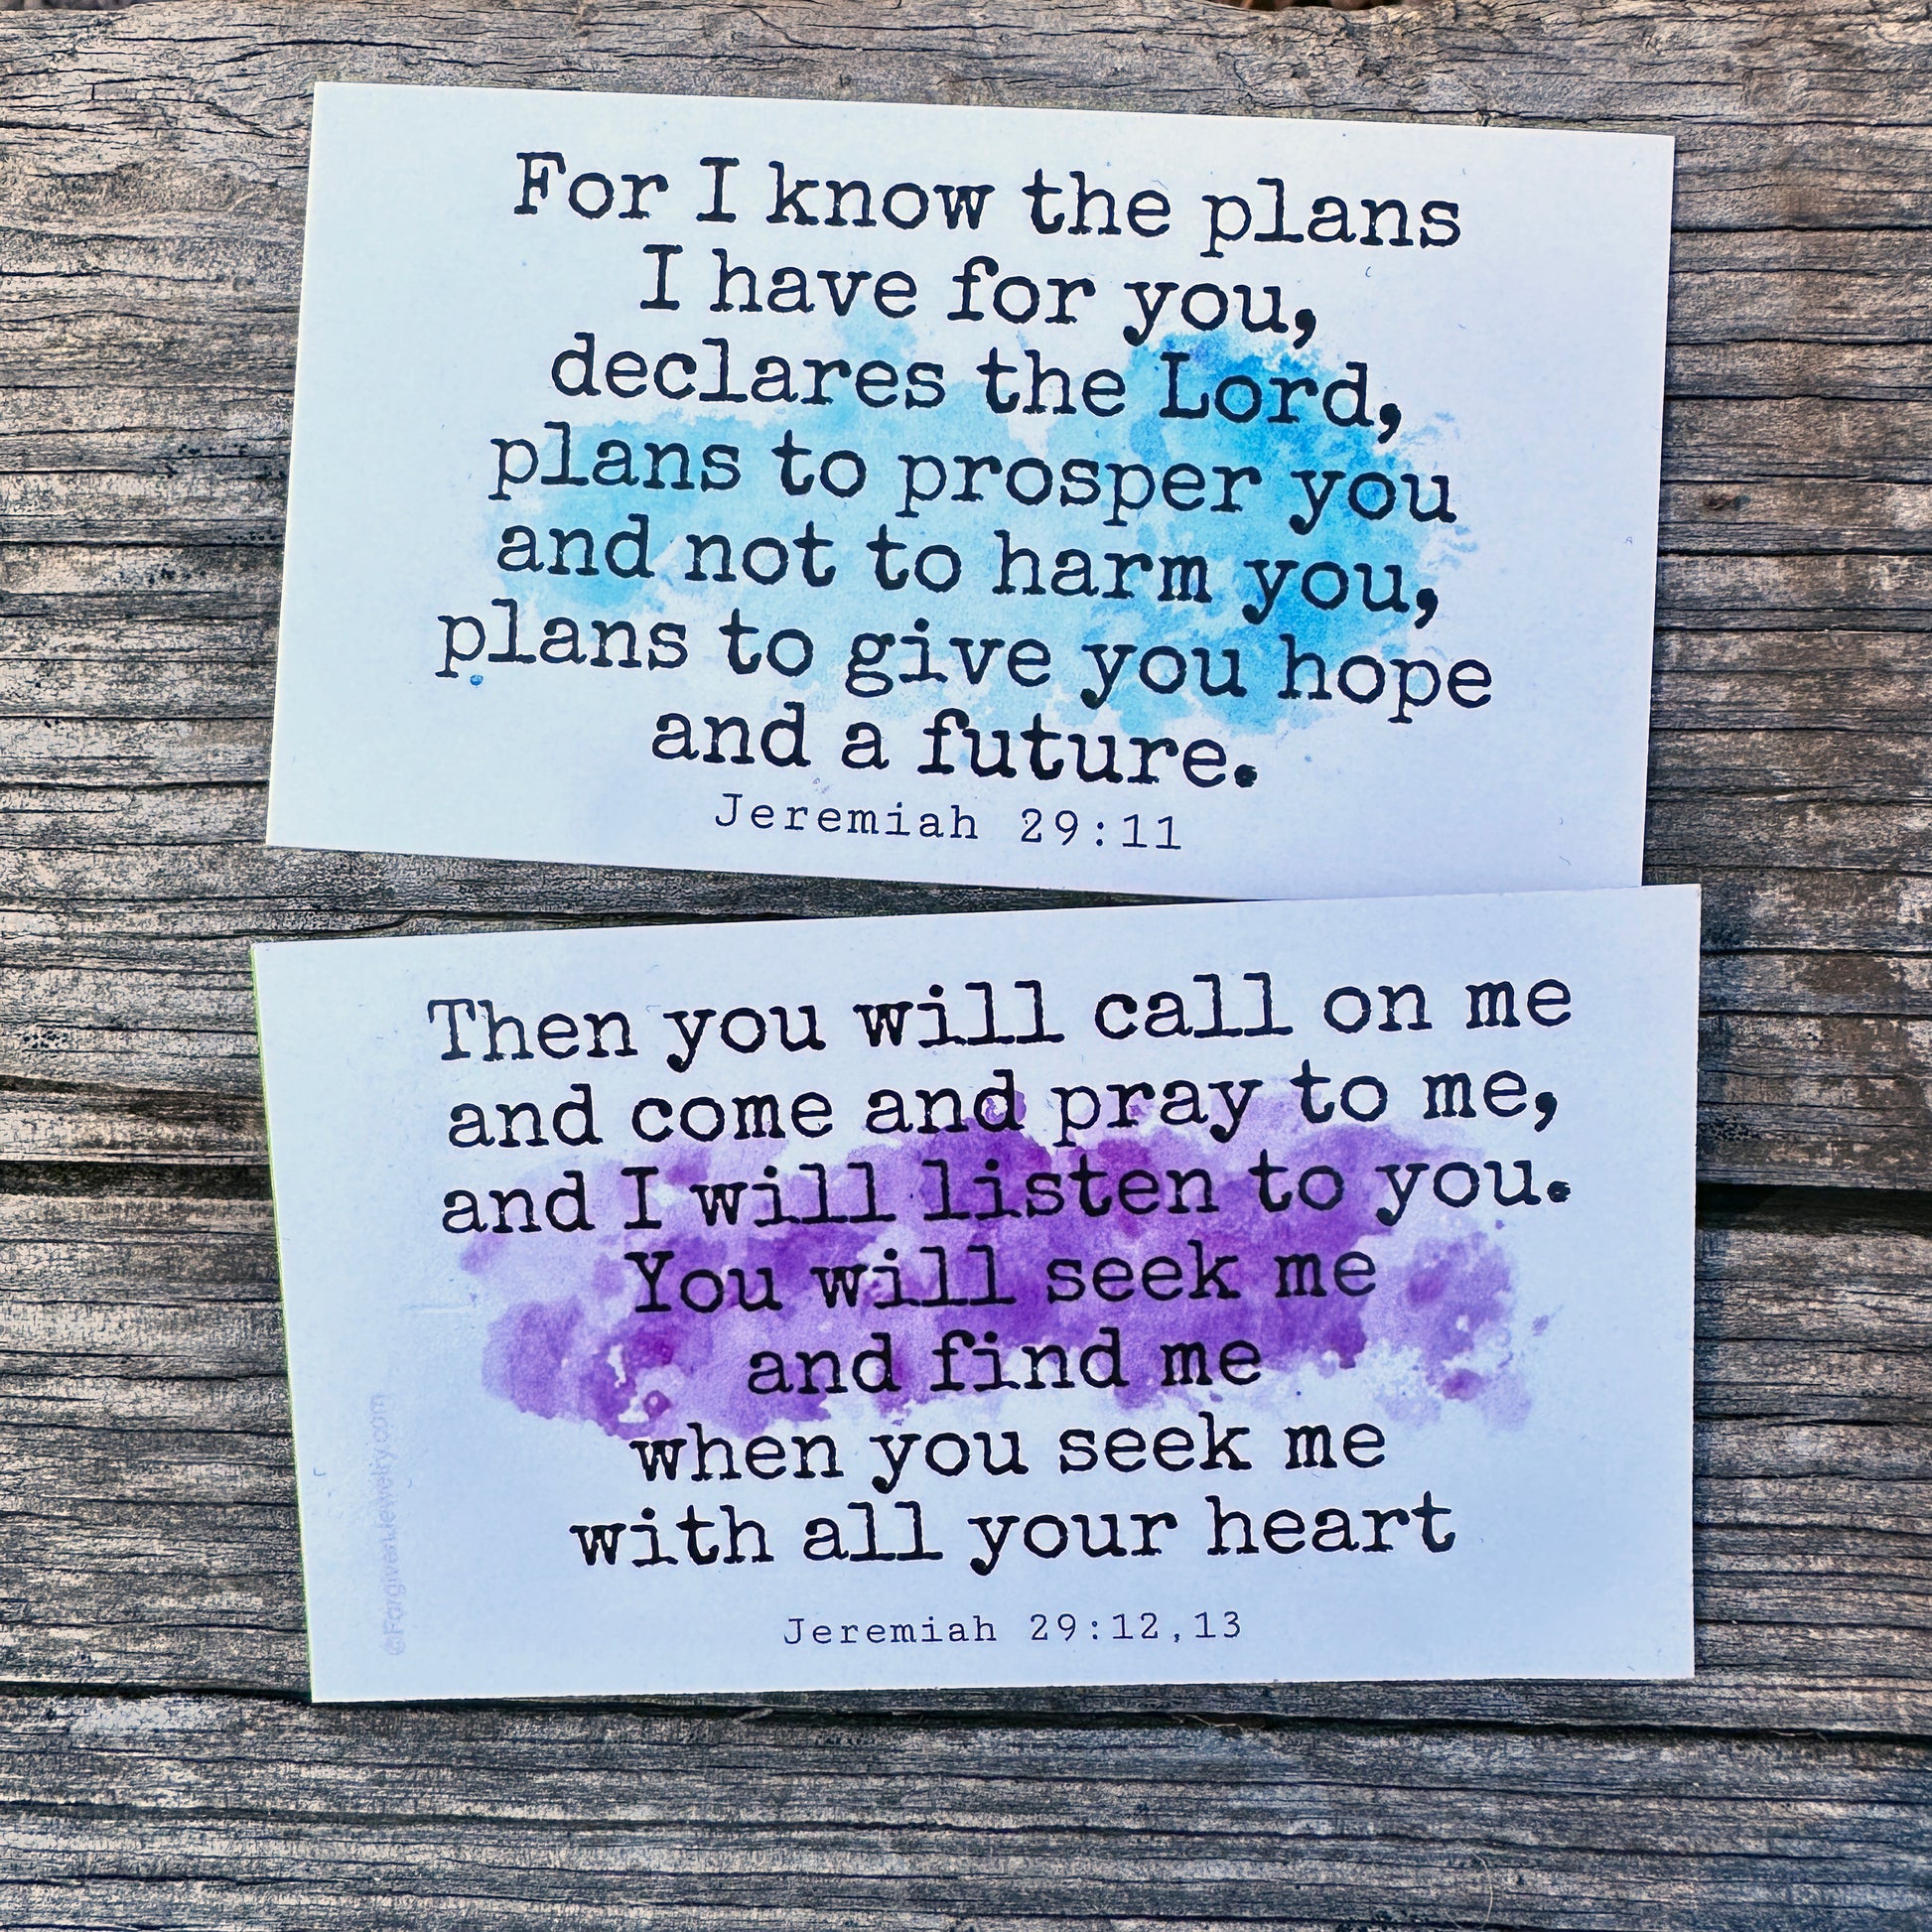 For I know the plans
I have for you,
declares the Lord,
plans to prosper you
and not to harm you,
plans to give you hope
and a future.
Jeremiah 29:11
Then you will call on me
and come and pray to me,
and I will listen to you.
You will seek me
and find me
when you seek me
with all your heart
Jeremiah 29:12,13
©ForgivenJewelry.com